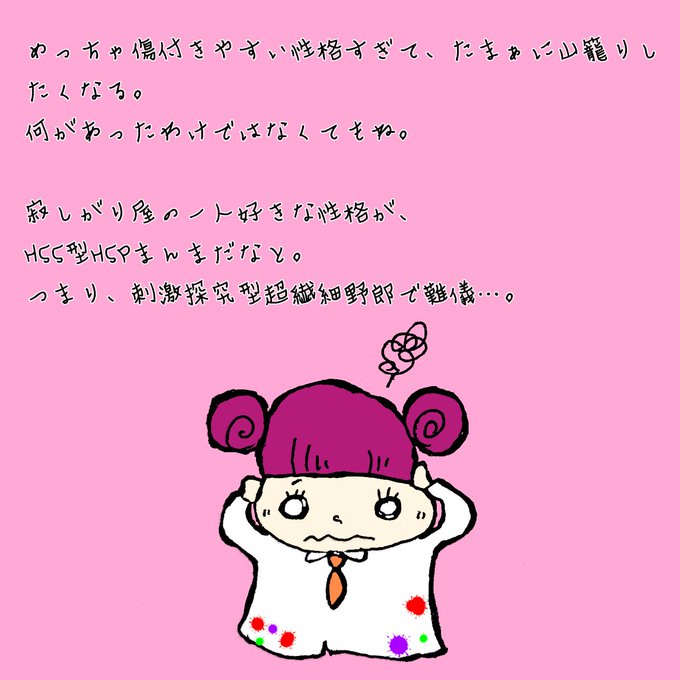 めっちゃ傷付きやすい性格すぎて、たまぁに山籠りし
たくなる。
何があったわけではなくてもね。
寂しがり屋の一人好きな性格が、
HSS型HSPまんまだなと。
つまり、刺激探究型超繊細野郎で難儀…。